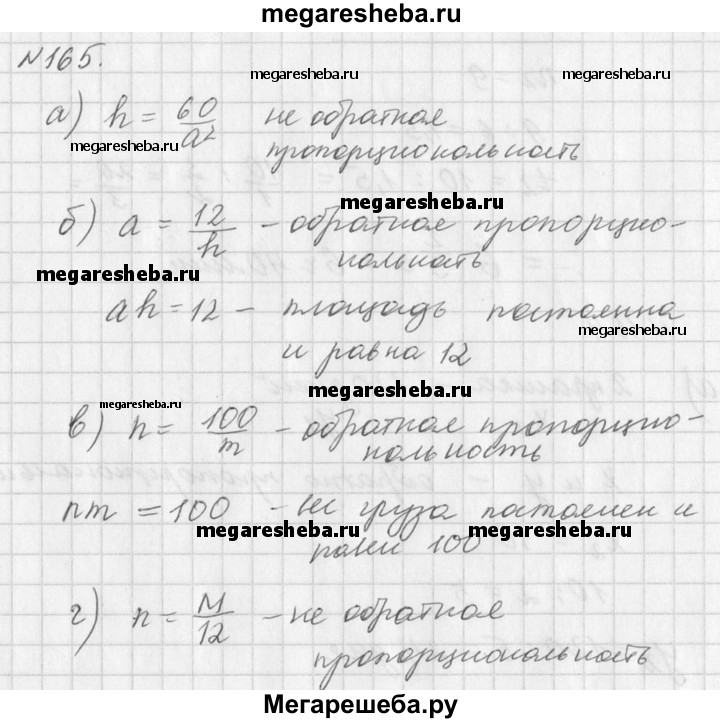 megaresheba.ru
№165.
megaresheba.ru megaresheba.ru
а) h = 60/a² не обратная
megaresheba.ru
пропорциональность
megaresheba.ru
б) a = 12/h - обратная пропорцио-
нальность
megaresheba.ru
ah = 12 - площадь постоянна
megaresheba.ru
и равна 12
megaresheba.ru
megaresheba.ru
в) n = 100/m - обратная пропорцио-
нальность
nm = 100 - вес груза постоянен и
megaresheba.ru megaresheba.ru
равен 100
г) n = M/12 - не обратная
пропорциональность
Мегарешеба.ру